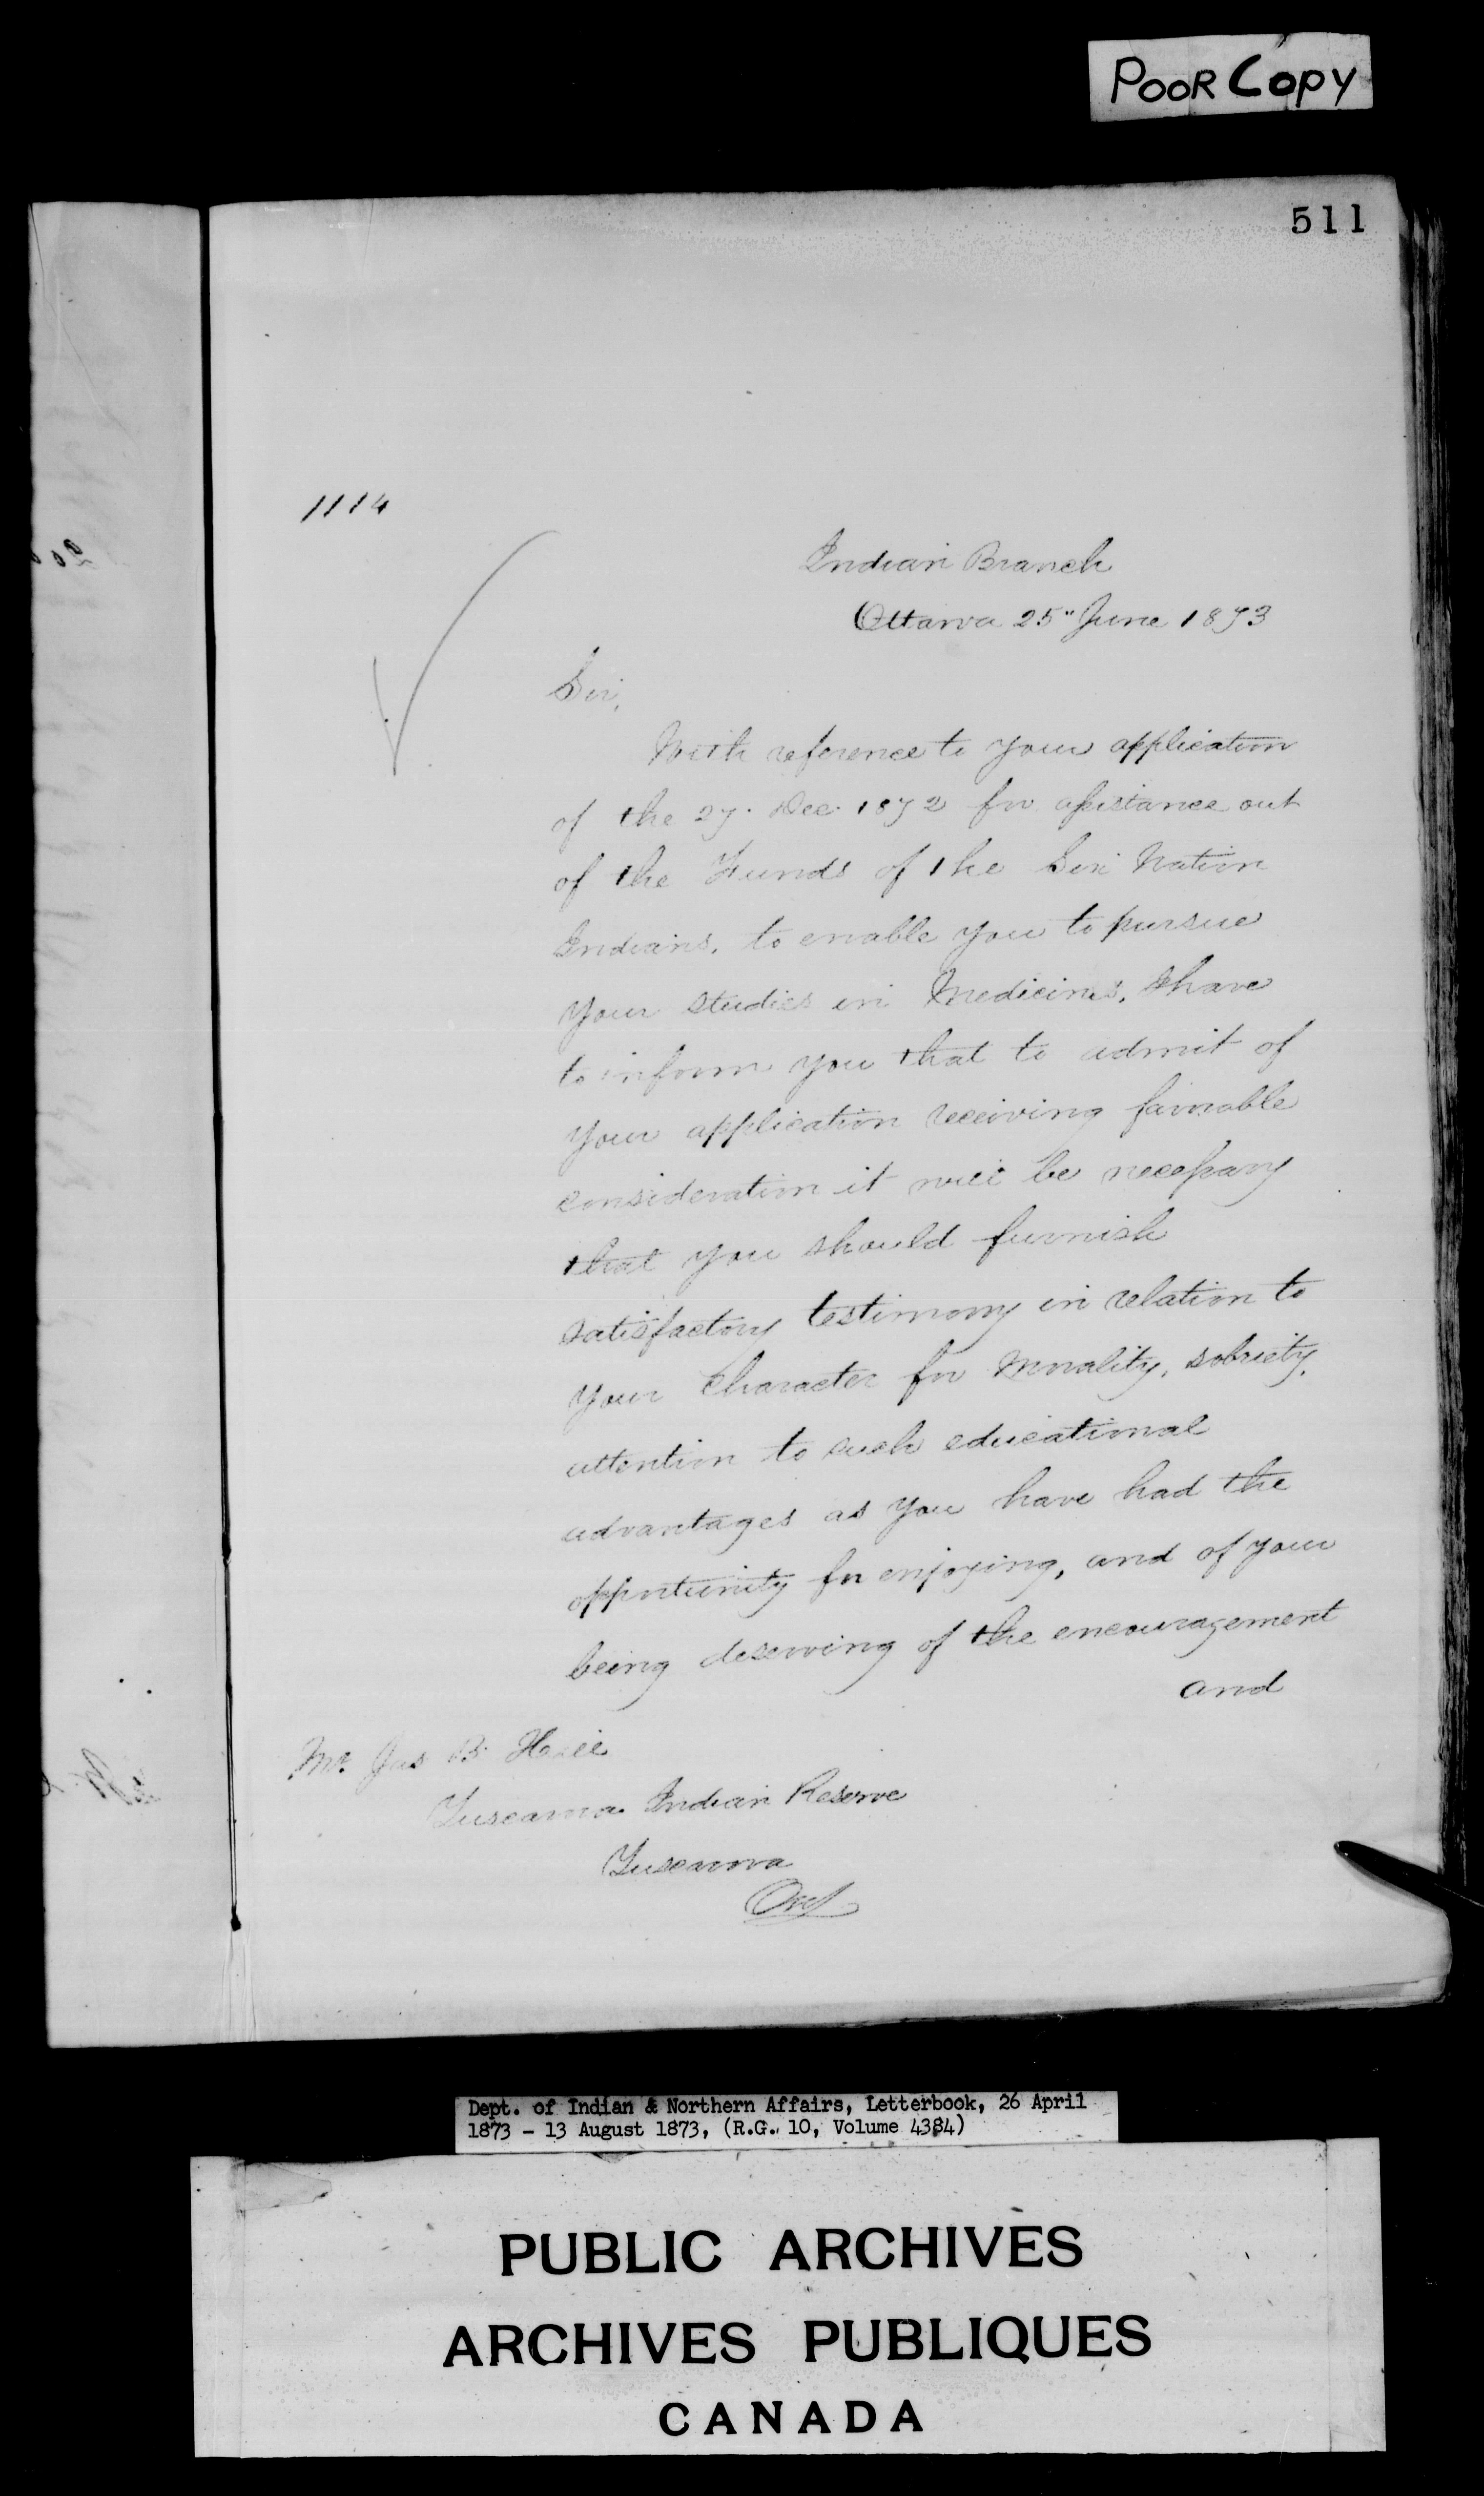 POOR COPY
511
1114
Indian Branch
Ottawa 25" June 1873
Sir,
With reference to your application
of the 27. Dec. 1872 for assistance out
of the Funds of the Six Nation
Indians, to enable you to pursue
your studies in Medicine, I have
to inform you that to admit of
your application receiving favorable
consideration it will be necessary
that you should furnish
satisfactory testimony in relation to
your character for morality, sobriety,
attention to such educational
advantages as you have had the
opportunity for enjoying, and of your
being deserving of the encouragement
and
Mr. Jas B. Hill
Tuscarora Indian Reserve
Tuscarora
Ont
Dept. of Indian & Northern Affairs, Letterbook, 26 April
1873 - 13 August 1873, (R.G. 10, Volume 4384)
PUBLIC ARCHIVES
ARCHIVES PUBLIQUES
CANADA